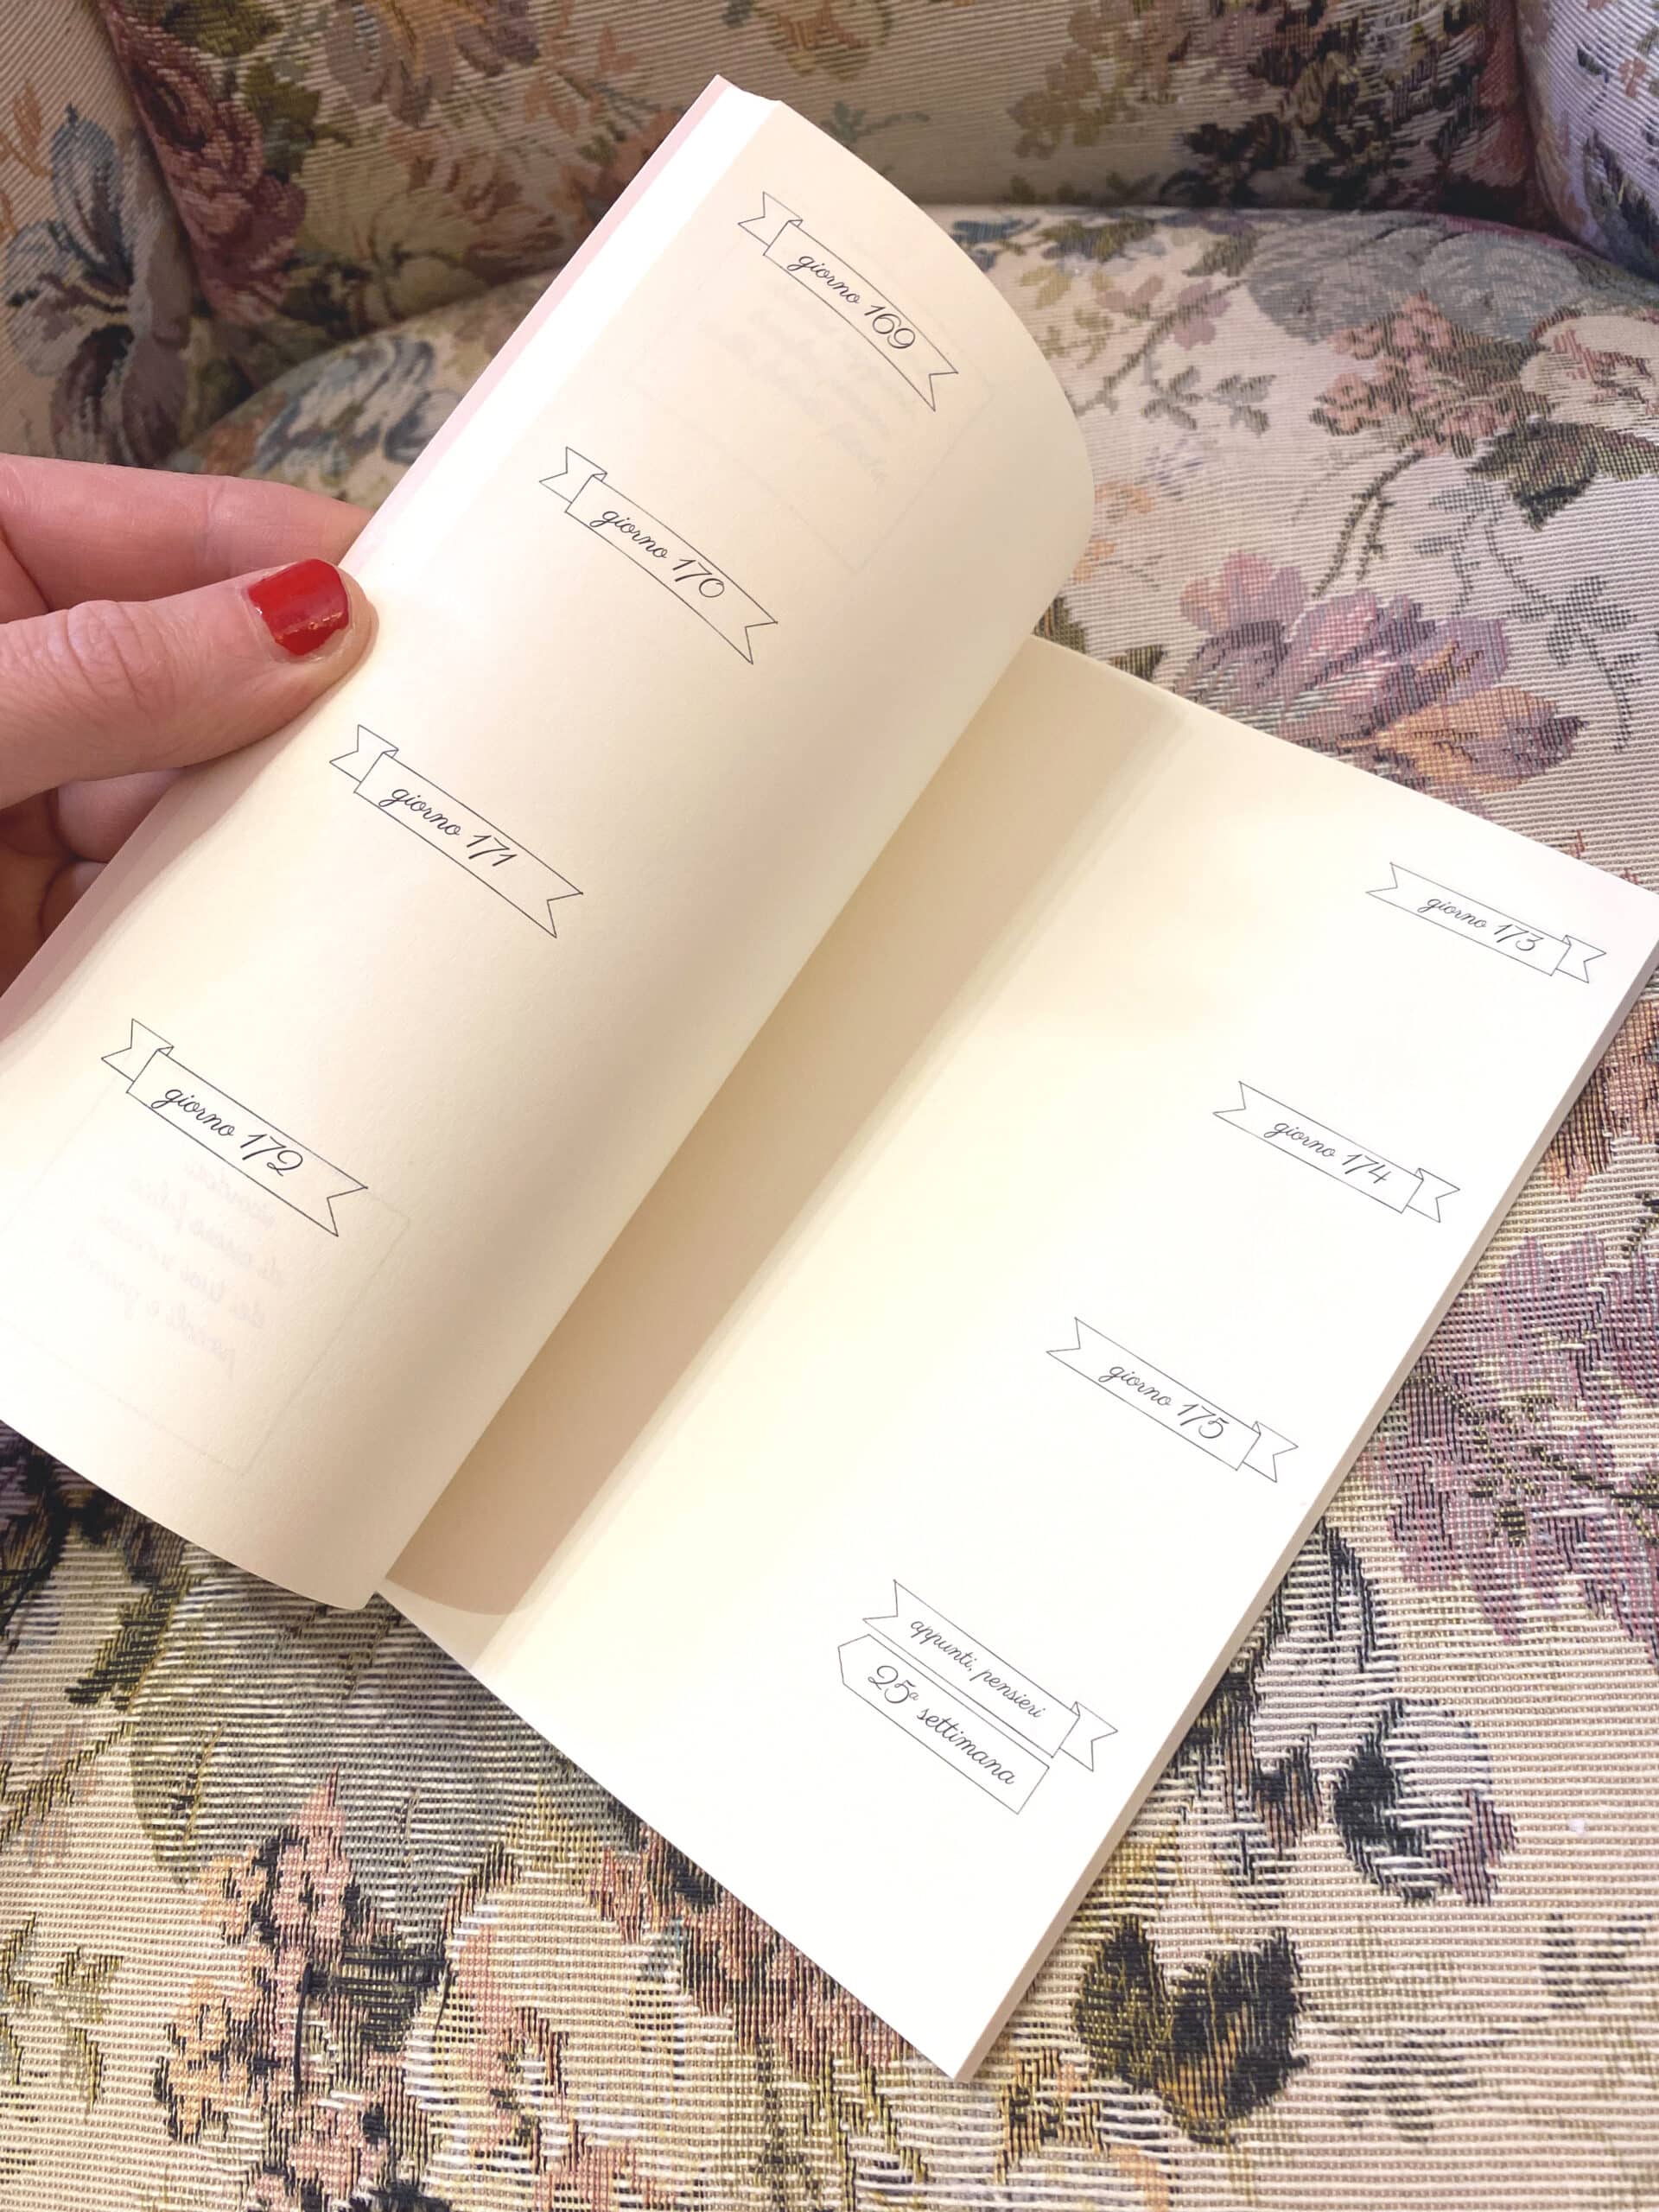 giorno 169
giorno 170
giorno 171
giorno 172
giorno 173
giorno 174
giorno 175
appunti, pensieri
25a settimana